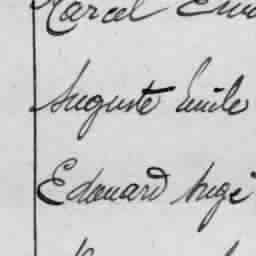 Marcel Emi
Auguste Emile
Edouard Ange